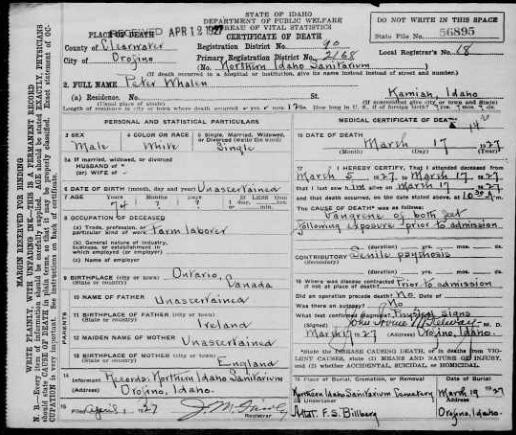 STATE OF IDAHO
DEPARTMENT OF PUBLIC WELFARE
BUREAU OF VITAL STATISTICS
CERTIFICATE OF DEATH
RECEIVED APR 12 1927
DO NOT WRITE IN THIS SPACE
State File No. 56895
PLACE OF DEATH
County of Clearwater
City of Orofino
Registration District No. 90
Primary Registration District No. 2168
Local Registrar's No. 18
(No. Northern Idaho Sanitarium
(If death occurred in a hospital or institution, give its name instead of street and number.)
2. FULL NAME Peter Whalen
(a) Residence. No. St. Kamiah, Idaho
(Usual place of abode)
PERSONAL AND STATISTICAL PARTICULARS
3 SEX
Male
4 COLOR OR RACE
White
5 Single, Married, Widowed, or Divorced
Single
5a If married, widowed, or divorced
HUSBAND of
or WIFE of
6 DATE OF BIRTH (month, day and year) Unascertained
7 AGE
74
8 OCCUPATION OF DECEASED
(a) Trade, profession, or particular kind of work Farm laborer
(b) General nature of industry, business, or establishment in which employed (or employer)
(c) Name of employer
9 BIRTHPLACE (city or town) Ontario,
(State or country) Canada
10 NAME OF FATHER
Unascertained
11 BIRTHPLACE OF FATHER (city or town)
(State or country) Ireland
12 MAIDEN NAME OF MOTHER
Unascertained
13 BIRTHPLACE OF MOTHER (city or town)
(State or country) England
PARENTS
14 Informant Records: Northern Idaho Sanitarium
(Address) Orofino, Idaho.
15 Filed April 1, 1927
Registrar
MEDICAL CERTIFICATE OF DEATH
16 DATE OF DEATH
March 17 1927
(Month) (Day) (Year)
17 I HEREBY CERTIFY, That I attended deceased from
March 5 1927 to March 17 1927
that I last saw him alive on March 17 1927
and that death occurred, on the date stated above, at
The CAUSE OF DEATH was as follows:
Gangrene of both feet
following exposure prior to admission
(duration) yrs. mos. ds.
CONTRIBUTORY Senile psychosis
(Secondary)
(duration) yrs. mos. ds.
18 Where was disease contracted
if not at place of death? Prior to admission
Did an operation precede death? No Date of
Was there an autopsy? No
What test confirmed diagnosis? Physical signs
(Signed) M. D.
March 17 1927 (Address) Orofino, Idaho.
State the DISEASE CAUSING DEATH, or in deaths from VIOLENT CAUSES, state (1) MEANS AND NATURE OF INJURY, and (2) whether ACCIDENTAL, SUICIDAL, or HOMICIDAL.
19 Place of Burial, Cremation, or Removal
Northern Idaho Sanitarium Cemetery
Date of Burial
March 19 1927
20 Undertaker
Attdt. F.S. Billberg
Address
Orofino, Idaho.
MARGIN RESERVED FOR BINDING
WRITE PLAINLY, WITH UNFADING INK—THIS IS A PERMANENT RECORD
N. B.—Every item of information should be carefully supplied. AGE should be stated EXACTLY. PHYSICIANS
should state CAUSE OF DEATH in plain terms, so that it may be properly classified. Exact statement of OCCUPATION is very important. See instructions on back of certificate.